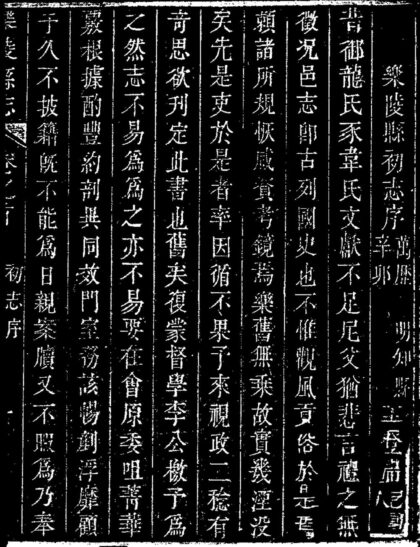 樂陵縣初志序 萬歷辛卯 明知縣 王登庸
昔御龍氏豕韋氏文獻不足尼父猶悲言禮之無
徵況邑志卽古列國史也不惟觀風貞俗於是焉
賴諸所規恢咸資考鏡焉樂舊無乘故實幾湮没
矣先是吏於是者率因循不果予來視政二稔有
奇思欲刊定此書也舊矣復蒙督學李公檄予爲
之然志不易爲爲之亦不易要在會原委咀菁華
覈根據酌豐約剖異同效門室務該暢剗浮靡顧
予久不披籍旣不能爲日親案牘又不照爲乃奉
樂陵縣志 卷之首 初志序 一